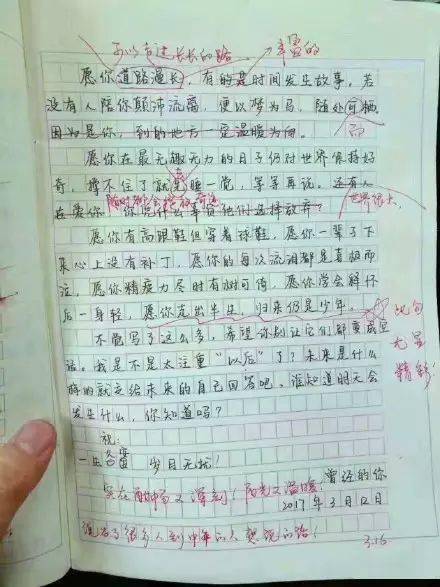 可以奔过长长的路 丰富的
愿你道路漫长,有的是时间发生故事。若
没有人陪你颠沛流离,便以梦为马,随处可栖。
因为是你,到的地方一定温暖为向。
而
愿你在最无趣无力的日子仍对世界保持好
奇,撑不住了就先睡一觉,等等再说。还有人
在爱你,你凭什么辜负他们选择放弃?
世界很大,
愿你有高跟鞋但穿着球鞋,愿你一辈子下
来心上没有补丁,愿你的每次流泪都是喜极而
泣,愿你精疲力尽时有树可倚,愿你学会释怀
后一身轻,愿你走出半生,归来仍是少年。
此句
不能写了这么多,希望你别让它们都变成空
尤显
话。我是不是太注重“以后”了?未来是什么
精彩!
样的就交给未来的自己回答吧。谁知道明天会
发生什么,你知道吗?
祝:
一生努力 岁月无忧!
曾经的你
实在酣畅又深刻!阳光又温暖,
2017年3月12日
说出了很多人到中年的人
3.16